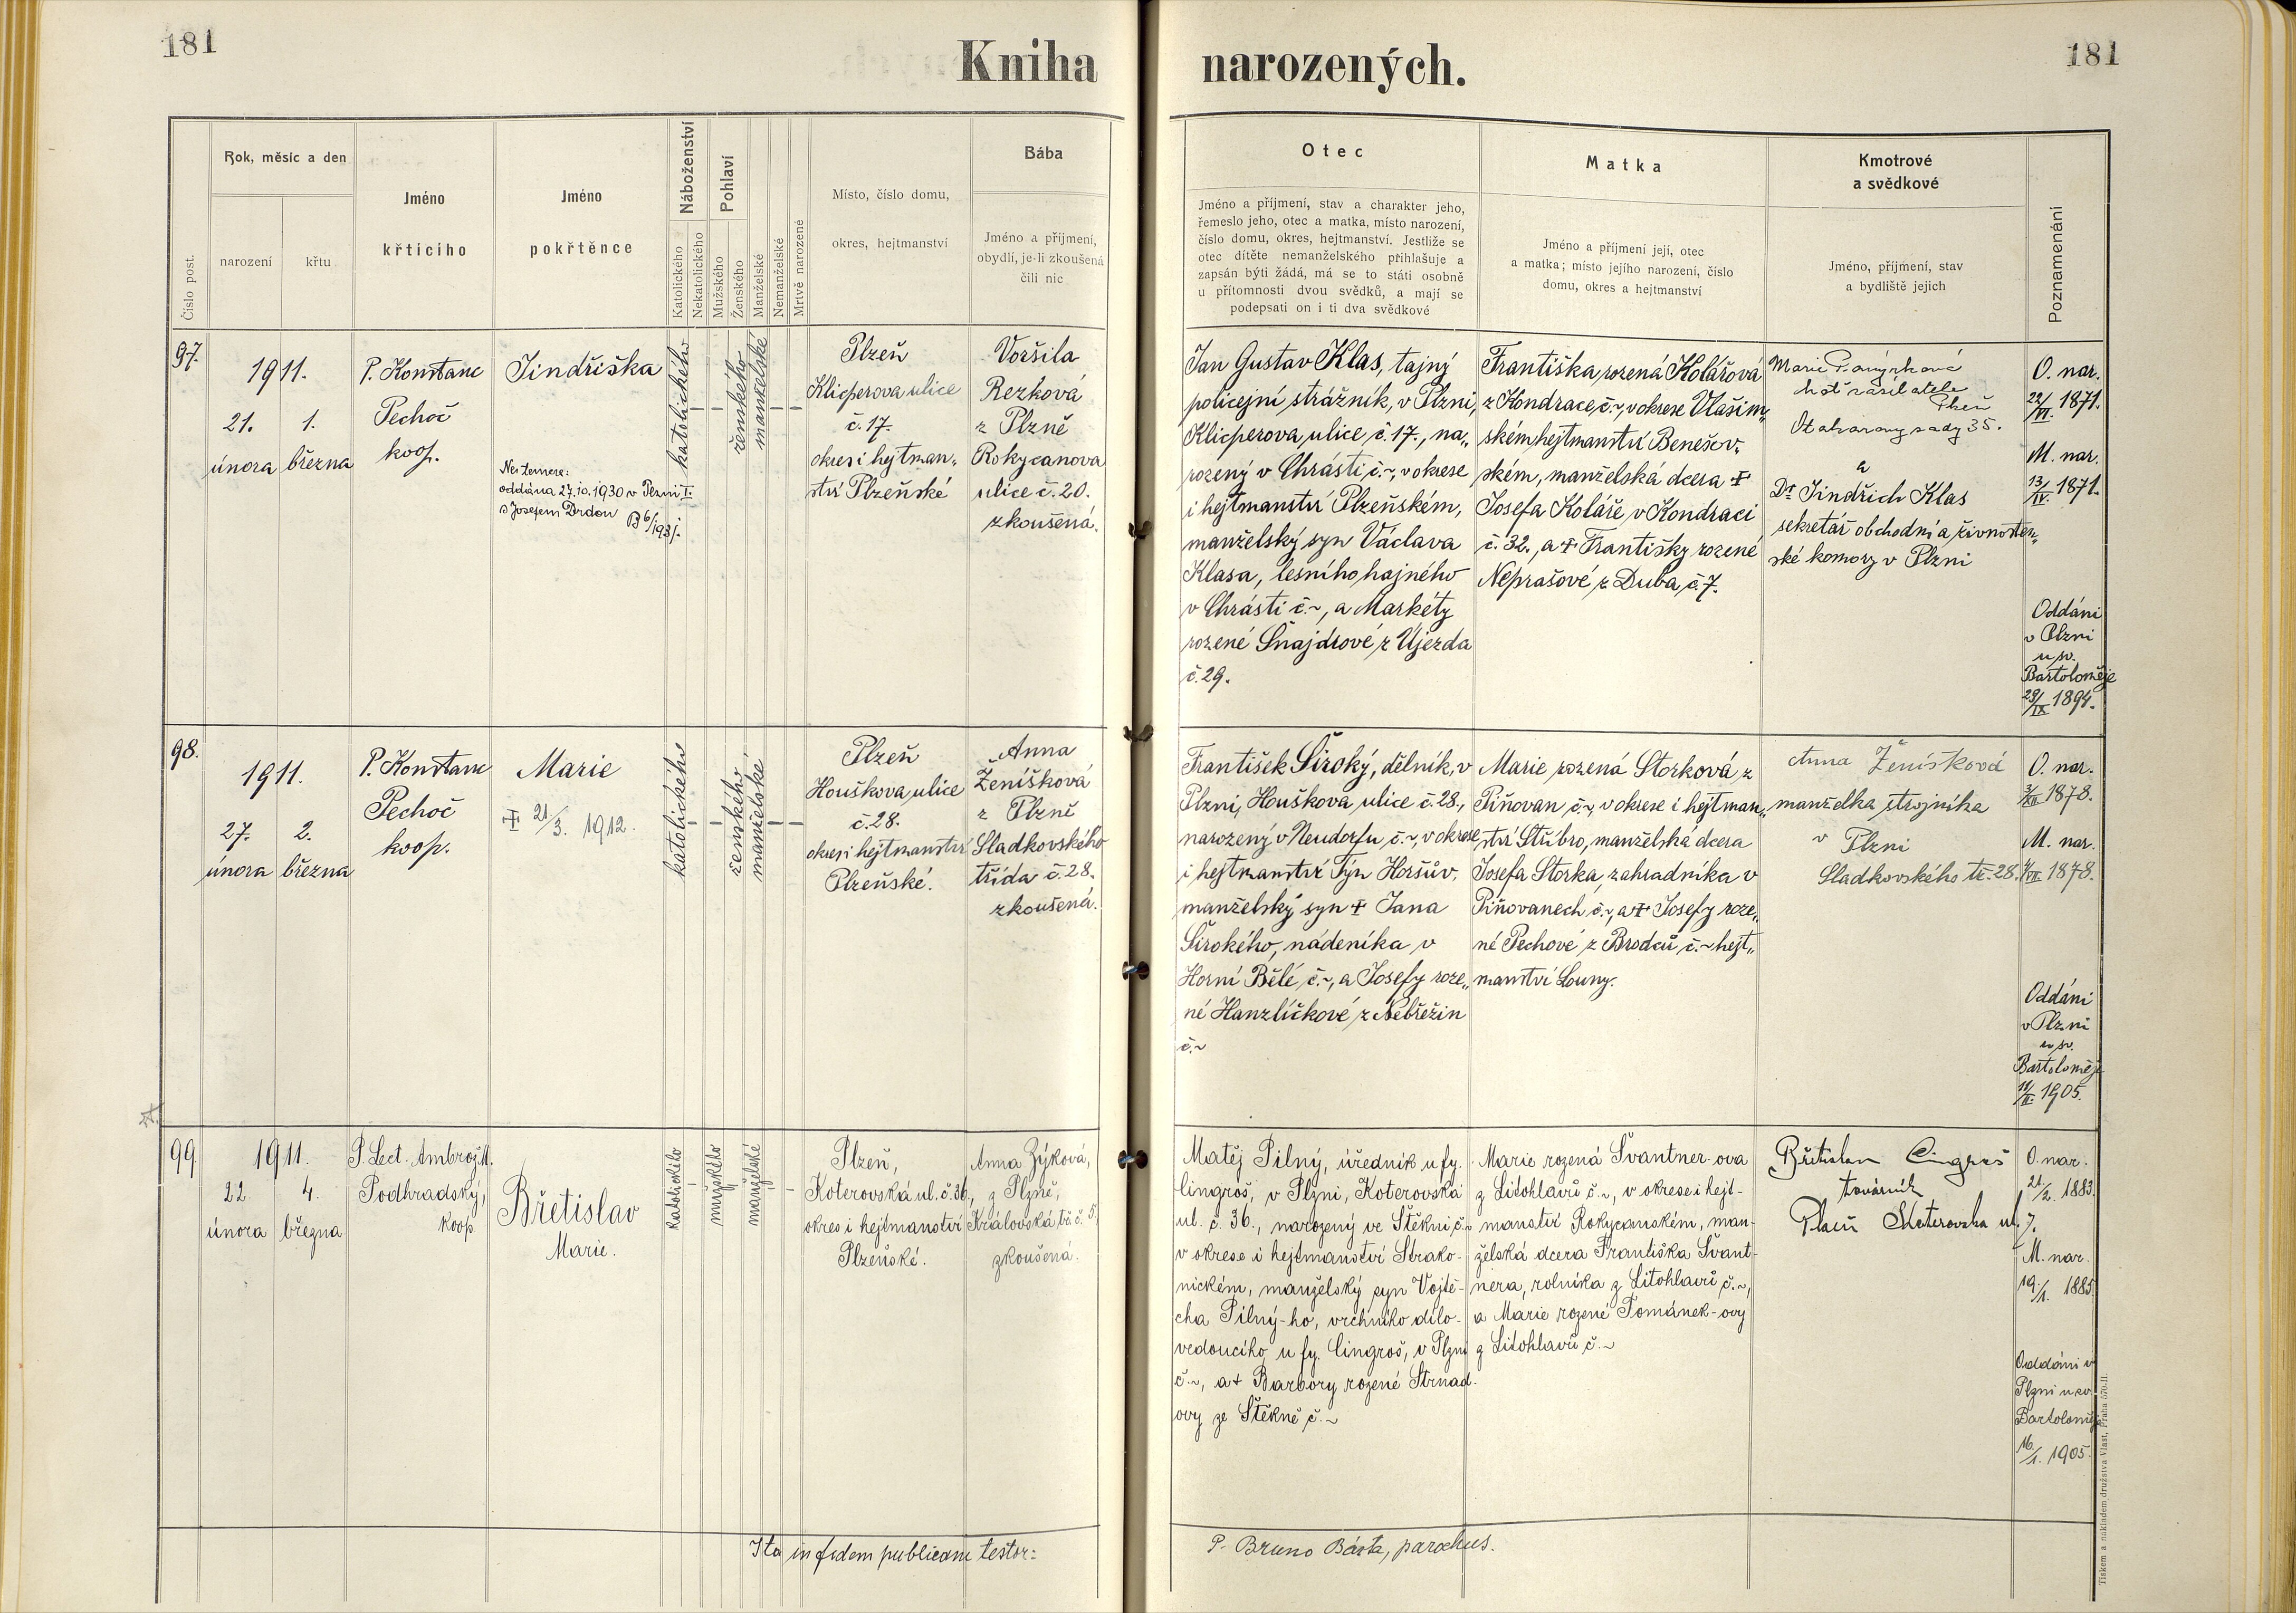 181
Kniha narozených.
181
Číslo post.
Rok, měsíc a den
narození
křtu
Jméno
křtícího
Jméno
pokřtěnce
Náboženství
Katolického
Nekatolického
Pohlaví
Mužského
Ženského
Manželské
Nemanželské
Mrtvě narozené
Místo, číslo domu,
okres, hejtmanství
Bába
Jméno a příjmení,
obydlí, je-li zkoušená
čili nic
Otec
Jméno a příjmení, stav a charakter jeho,
řemeslo jeho, otec a matka, místo narození,
číslo domu, okres, hejtmanství. Jestliže se
otec dítěte nemanželského přihlašuje a
zapsán býti žádá, má se to státi osobně
u přítomnosti dvou svědků, a mají se
podepsati on i ti dva svědkové
Matka
Jméno a příjmení její, otec
a matka; místo jejího narození, číslo
domu, okres a hejtmanství
Kmotrové
a svědkové
Jméno, příjmení, stav
a bydliště jejich
Poznamenání
97.
1911.
21. 1.
února března
P. Konstanc
Pechoč
koop.
Jindřiška
Ne temere:
oddána 27.10.1930 v Plzni I.
s Josefem Drdou
B 6/1931.
katolického
–
–
ženského
manželské
–
–
Plzeň
Klicperova ulice
č. 17.
okres i hejtman„
ství Plzeňské
Voršila
Rezková
z Plzně
Rokycanova
ulice č. 20.
zkoušená.
Jan Gustav Klas, tajný
policejní strážník, v Plzni,
Klicperova ulice č. 17., na„
rozený v Chrásti č. ~, v okrese
i hejtmanství Plzeňském,
manželský syn Václava
Klasa, lesního hajného
v Chrásti č. ~, a Markéty
rozené Šnajdrové z Újezda
č. 29.
Františka rozená Kolářová
z Kondrace, č. ~, v okrese Vlašim„
ském hejtmanství Benešov„
ském, manželská dcera +
Josefa Koláře v Kondraci
č. 32., a + Františky rozené
Neprašové z Duba, č. 7.
Marie
choť
Plzeň
sady 35.
a
Dr Jindřich Klas
sekretář obchodní a živnosten„
ské komory v Plzni
O. nar.
22/VI. 1871.
M. nar.
13/IV. 1871.
Oddáni
v Plzni
u sv.
Bartoloměje
29/IX 1894.
98.
1911.
27. 2.
února března
P. Konstanc
Pechoč
koop.
Marie
+ 21/3. 1912.
katolického
–
–
ženského
manželské
–
–
Plzeň
Houškova ulice
č. 28.
okres i hejtmanství
Plzeňské.
Anna
Ženíšková
z Plzně
Sladkovského
třída č. 28.
zkoušená.
František Široký, dělník, v
Plzni, Houškova ulice č. 28.,
narozený v Neudorfu, č. ~, v okrese
i hejtmanství Týn Horšův.
manželský syn + Jana
Širokého, nádeníka v
Horní Bělé, č. ~, a Josefy roze„
né Hanzlíčkové z Nebřežin
č. ~
Marie rozená Štorková z
Piňovan č. ~, v okrese i hejtman„
ství Stříbro, manželská dcera
Josefa Štorka, zahradníka v
Piňovanech č. ~, a + Josefy roze„
né Pechové z Brodců č. ~ hejt„
manství Louny.
Anna Ženíšková
manželka strojníka
v Plzni
Sladkovského tř. 28.
O. nar.
3/XII 1878.
M. nar.
4/VII. 1878.
Oddáni
v Plzni
u sv.
Bartoloměje
11/II. 1905.
99
1911.
22 4.
února března
P. Lect. Ambrož M.
Podhradský,
koop
Břetislav
Marie.
katolického
–
mužského
–
manželské
–
–
Plzeň,
Koterovská ul. č. 36.,
okres i hejtmanství
Plzeňské.
Anna Zýková,
z Plzně,
Královská tř. č. 5,
zkoušená.
Matěj Pilný, úředník u fy.
Cingroš, v Plzni, Koterovská
ul. č. 36., narozený ve Štěkni, č. ~
v okrese i hejtmanství Strako-
nickém, manželský syn Vojtě-
cha Pilný-ho, vrchního dílo-
vedoucího u fy. Cingroš, v Plzni
č. ~, a + Barbory rozené Strnad-
ovy ze Štěkně č. ~
Marie rozená Švantner-ova
z Litohlavů č. ~, v okrese i hejt-
manství Rokycanském, man-
želská dcera Františka Švant-
nera, rolníka z Litohlavů, č. ~,
a Marie rozené Tománek-ovy
z Litohlavů č. ~
Břetislav Cingroš
továrník
Plzeň Koterovska ul. 7.
O. nar.
21/2. 1883.
M. nar.
19./1. 1885.
Oddáni v
Plzni u sv.
Bartoloměje
16./1. 1905.
Ita in fidem publicam testor:
P. Bruno Bárta, parochus.
Tiskem a nákladem družstva Vlast, Praha 570-II.